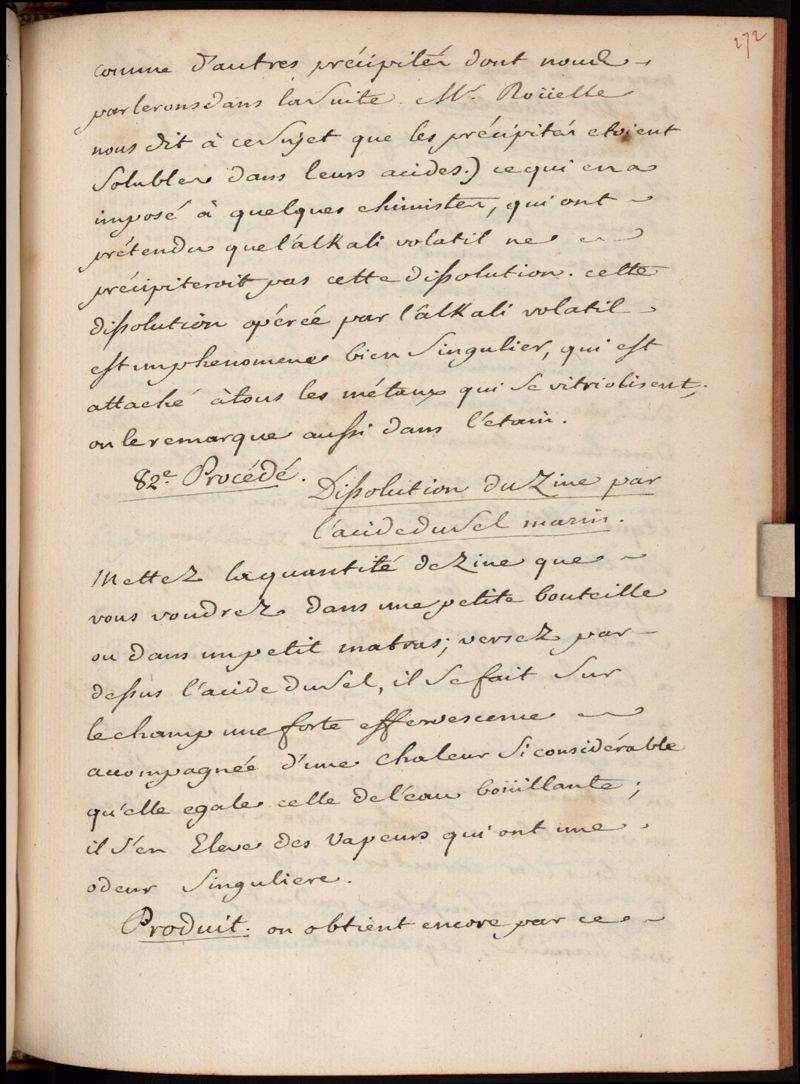 272
comme d'autres précipités dont nous
parlerons dans la Suite. Mr. Roüelle
nous dit à ce Sujet que les précipités etoient
Solubles dans leurs acides.) ce qui en a
imposé à quelques chimistes, qui ont
prétendu que l'alKali volatil ne
précipiteroit pas cette dissolution. cette
dissolution opérée par l'alKali volatil
est un phenomene bien Singulier, qui est
attaché à tous les métaux qui Se vitriolisent;
on le remarque aussi dans l'étain.
82e. Procédé.
Dissolution du Zinc par
l'acide du Sel marin.
Mettez la quantité de Zinc que
vous voudrez dans une petite bouteille
ou dans un petit matras; versez par
dessus l'acide du Sel, il Se fait Sur
le champ une forte effervescence
accompagnée d'une chaleur Si considérable
qu'elle egale celle de l'eau boüillante;
il S'en Eleve des Vapeurs qui ont une
odeur Singuliere.
Produit. on obtient encore par ce